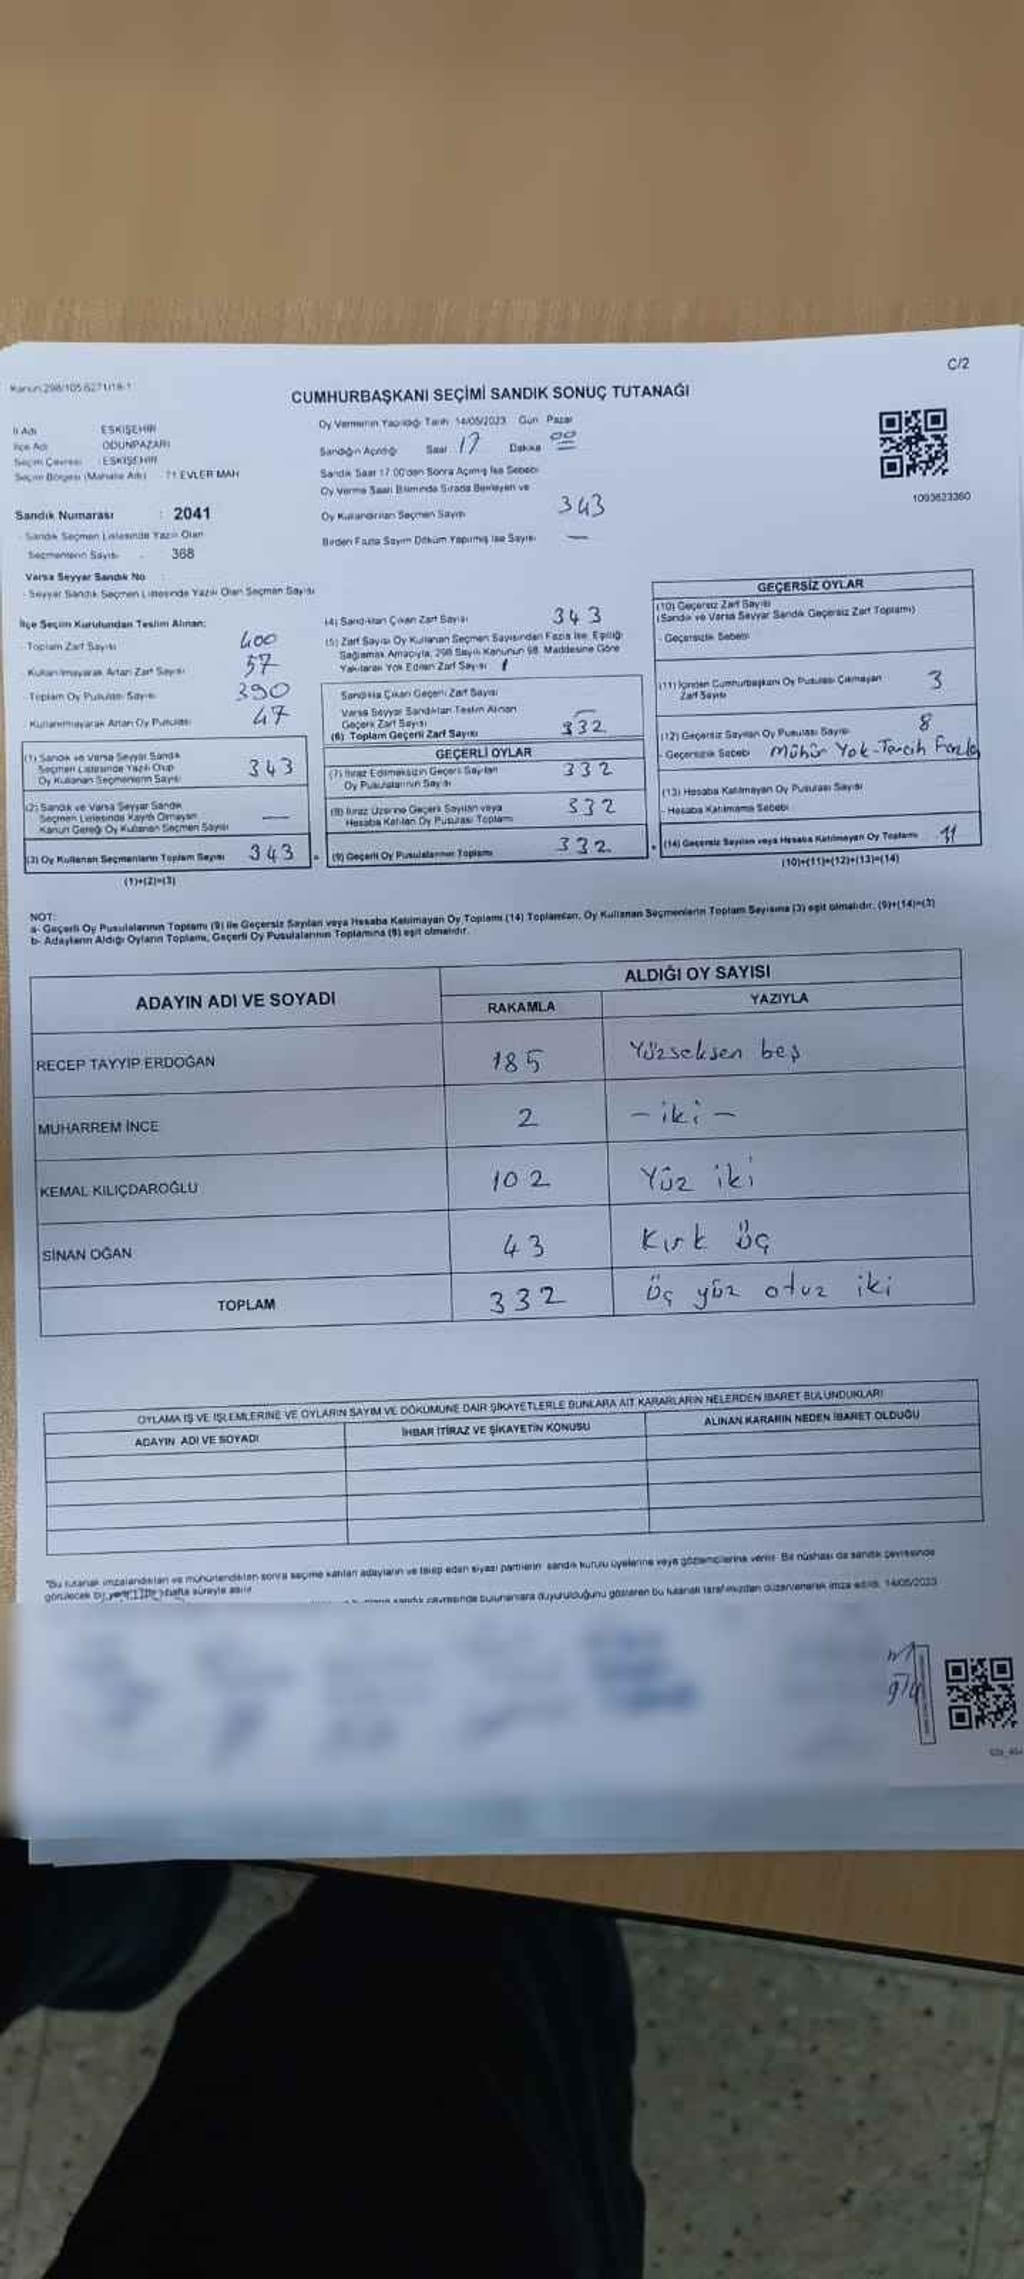 Kanun 298/105 6271/18-1
C/2
CUMHURBAŞKANI SEÇİMİ SANDIK SONUÇ TUTANAĞI
İl Adı : ESKİŞEHİR
İlçe Adı : ODUNPAZARI
Seçim Çevresi : ESKİŞEHİR
Seçim Bölgesi (Mahalle Adı) : 71 EVLER MAH
Sandık Numarası : 2041
Sandık Seçmen Listesinde Yazılı Olan
Seçmenlerin Sayısı : 368
Varsa Seyyar Sandık No :
- Seyyar Sandık Seçmen Listesinde Yazılı Olan Seçmen Sayısı
Oy Vermenin Yapıldığı Tarih 14/05/2023 Gün Pazar
Sandığın Açıldığı Saat 17 Dakika 00
Sandık Saat 17.00'den Sonra Açılmış İse Sebebi
Oy Verme Saati Bitiminde Sırada Bekleyen ve
Oy Kullandırılan Seçmen Sayısı 343
Birden Fazla Sayım Döküm Yapılmış İse Sayısı —
1093623360
İlçe Seçim Kurulundan Teslim Alınan;
Toplam Zarf Sayısı 400
Kullanılmayarak Artan Zarf Sayısı 57
Toplam Oy Pusulası Sayısı 390
- Kullanılmayarak Artan Oy Pusulası 47
(1) Sandık ve Varsa Seyyar Sandık
Seçmen Listesinde Yazılı Olup
Oy Kullanan Seçmenlerin Sayısı 343
(2) Sandık ve Varsa Seyyar Sandık
Seçmen Listesinde Kayıtlı Olmayan
Kanun Gereği Oy Kullanan Seçmen Sayısı —
(3) Oy Kullanan Seçmenlerin Toplam Sayısı 343
(1)+(2)=(3)
(4) Sandıktan Çıkan Zarf Sayısı 343
(5) Zarf Sayısı Oy Kullanan Seçmen Sayısından Fazla İse, Eşitliği
Sağlamak Amacıyla, 298 Sayılı Kanunun 98. Maddesine Göre
Yakılarak Yok Edilen Zarf Sayısı
Sandıkta Çıkan Geçerli Zarf Sayısı
Varsa Seyyar Sandıktan Teslim Alınan
Geçerli Zarf Sayısı
(6) Toplam Geçerli Zarf Sayısı 332
GEÇERLİ OYLAR
(7) İtiraz Edilmeksizin Geçerli Sayılan
Oy Pusulalarının Sayısı 332
(8) İtiraz Üzerine Geçerli Sayılan veya
Hesaba Katılan Oy Pusulası Toplamı 332
(9) Geçerli Oy Pusulalarının Toplamı 332
GEÇERSİZ OYLAR
(10) Geçersiz Zarf Sayısı
(Sandık ve Varsa Seyyar Sandık Geçersiz Zarf Toplamı)
- Geçersizlik Sebebi
(11) İçinden Cumhurbaşkanı Oy Pusulası Çıkmayan
Zarf Sayısı 3
(12) Geçersiz Sayılan Oy Pusulası Sayısı 8
- Geçersizlik Sebebi Mühür Yok-Tercih Fazla
(13) Hesaba Katılmayan Oy Pusulası Sayısı
- Hesaba Katılmama Sebebi
(14) Geçersiz Sayılan veya Hesaba Katılmayan Oy Toplamı 11
(10)+(11)+(12)+(13)=(14)
NOT:
a- Geçerli Oy Pusulalarının Toplamı (9) ile Geçersiz Sayılan veya Hesaba Katılmayan Oy Toplamı (14) Toplamları, Oy Kullanan Seçmenlerin Toplam Sayısına (3) eşit olmalıdır. (9)+(14)=(3)
b- Adayların Aldığı Oyların Toplamı, Geçerli Oy Pusulalarının Toplamına (9) eşit olmalıdır.
ADAYIN ADI VE SOYADI
ALDIĞI OY SAYISI
RAKAMLA YAZIYLA
RECEP TAYYİP ERDOĞAN 185 Yüzseksen beş
MUHARREM İNCE 2 - iki -
KEMAL KILIÇDAROĞLU 102 Yüz iki
SİNAN OĞAN 43 Kırk üç
TOPLAM 332 üç yüz otuz iki
OYLAMA İŞ VE İŞLEMLERİNE VE OYLARIN SAYIM VE DÖKÜMÜNE DAİR ŞİKAYETLERLE BUNLARA AİT KARARLARIN NELERDEN İBARET BULUNDUKLARI
ADAYIN ADI VE SOYADI
İHBAR İTİRAZ VE ŞİKAYETİN KONUSU
ALINAN KARARIN NEDEN İBARET OLDUĞU
"Bu tutanak imzalandıktan ve mühürlendikten sonra seçime katılan adayların ve talep eden siyasi partilerin sandık kurulu üyelerine veya gözlemcilerine verilir. Bir nüshası da sandık çevresinde
görülecek bir yere 1 (bir) hafta süreyle asılır
sandık çevresinde bulunanlara duyurulduğunu gösteren bu tutanak tarafımızdan düzenlenerek imza edildi. 14/05/2023